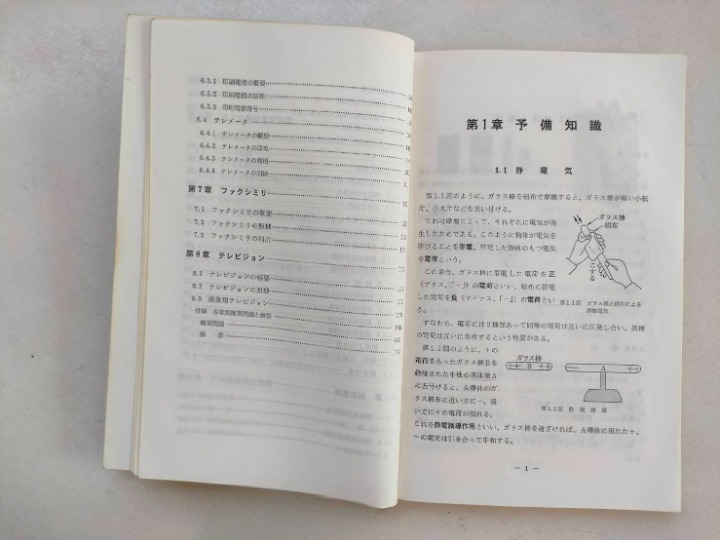 6.3.1 印刷電信の概要
6.3.2 印刷電信の
6.3.3 印刷電信符号
6.4 テレメータ
6.4.1 テレメータの概要
6.4.2 テレメータの
6.4.3 テレメータの
6.4.4 テレメータの
第7章 ファクシミリ
7.1 ファクシミリの概要
7.2 ファクシミリの原理
7.3 ファクシミリの
第8章 テレビジョン
8.1 テレビジョンの概要
8.2 テレビジョンの原理
8.3 産業用テレビジョン
付録 各章末練習問題と解答
練習問題
解 答
第1章 予備知識
1.1 静電気
第1.1図のように，ガラス棒を絹布で摩擦すると，ガラス棒が軽い小紙
片，小木片などを吸い付ける。
これは摩擦によって，それぞれに電気が発
生したためである。このように物体が電気を
帯びることを帯電，帯電した物体のもつ電気
を電荷という。
この場合，ガラス棒に帯電した電荷を正
（プラス，「＋」）の電荷といい，絹布に帯電
した電荷を負（マイナス，「－」）の電荷とい
う。
ガラス棒
絹布
こする
第1.1図 ガラス棒と絹布による
摩擦電気
すなわち，電荷には2種類あって同種の電荷は互いに反発し合い，異種
の電荷は互いに吸引するという性質がある。
第1.2図のように，＋の
電荷をもったガラス棒Bを
絶縁された中性の導体棒A
に近付けると，A導体のガ
ラス棒Bに近い方に－，遠
い方に＋の電荷が現れる。
ガラス棒
B
A
第1.2図 静電誘導
これを静電誘導作用といい，ガラス棒を遠ざければ，A導体に現れた＋，
－の電荷は引き合って中和する。
— 1 —